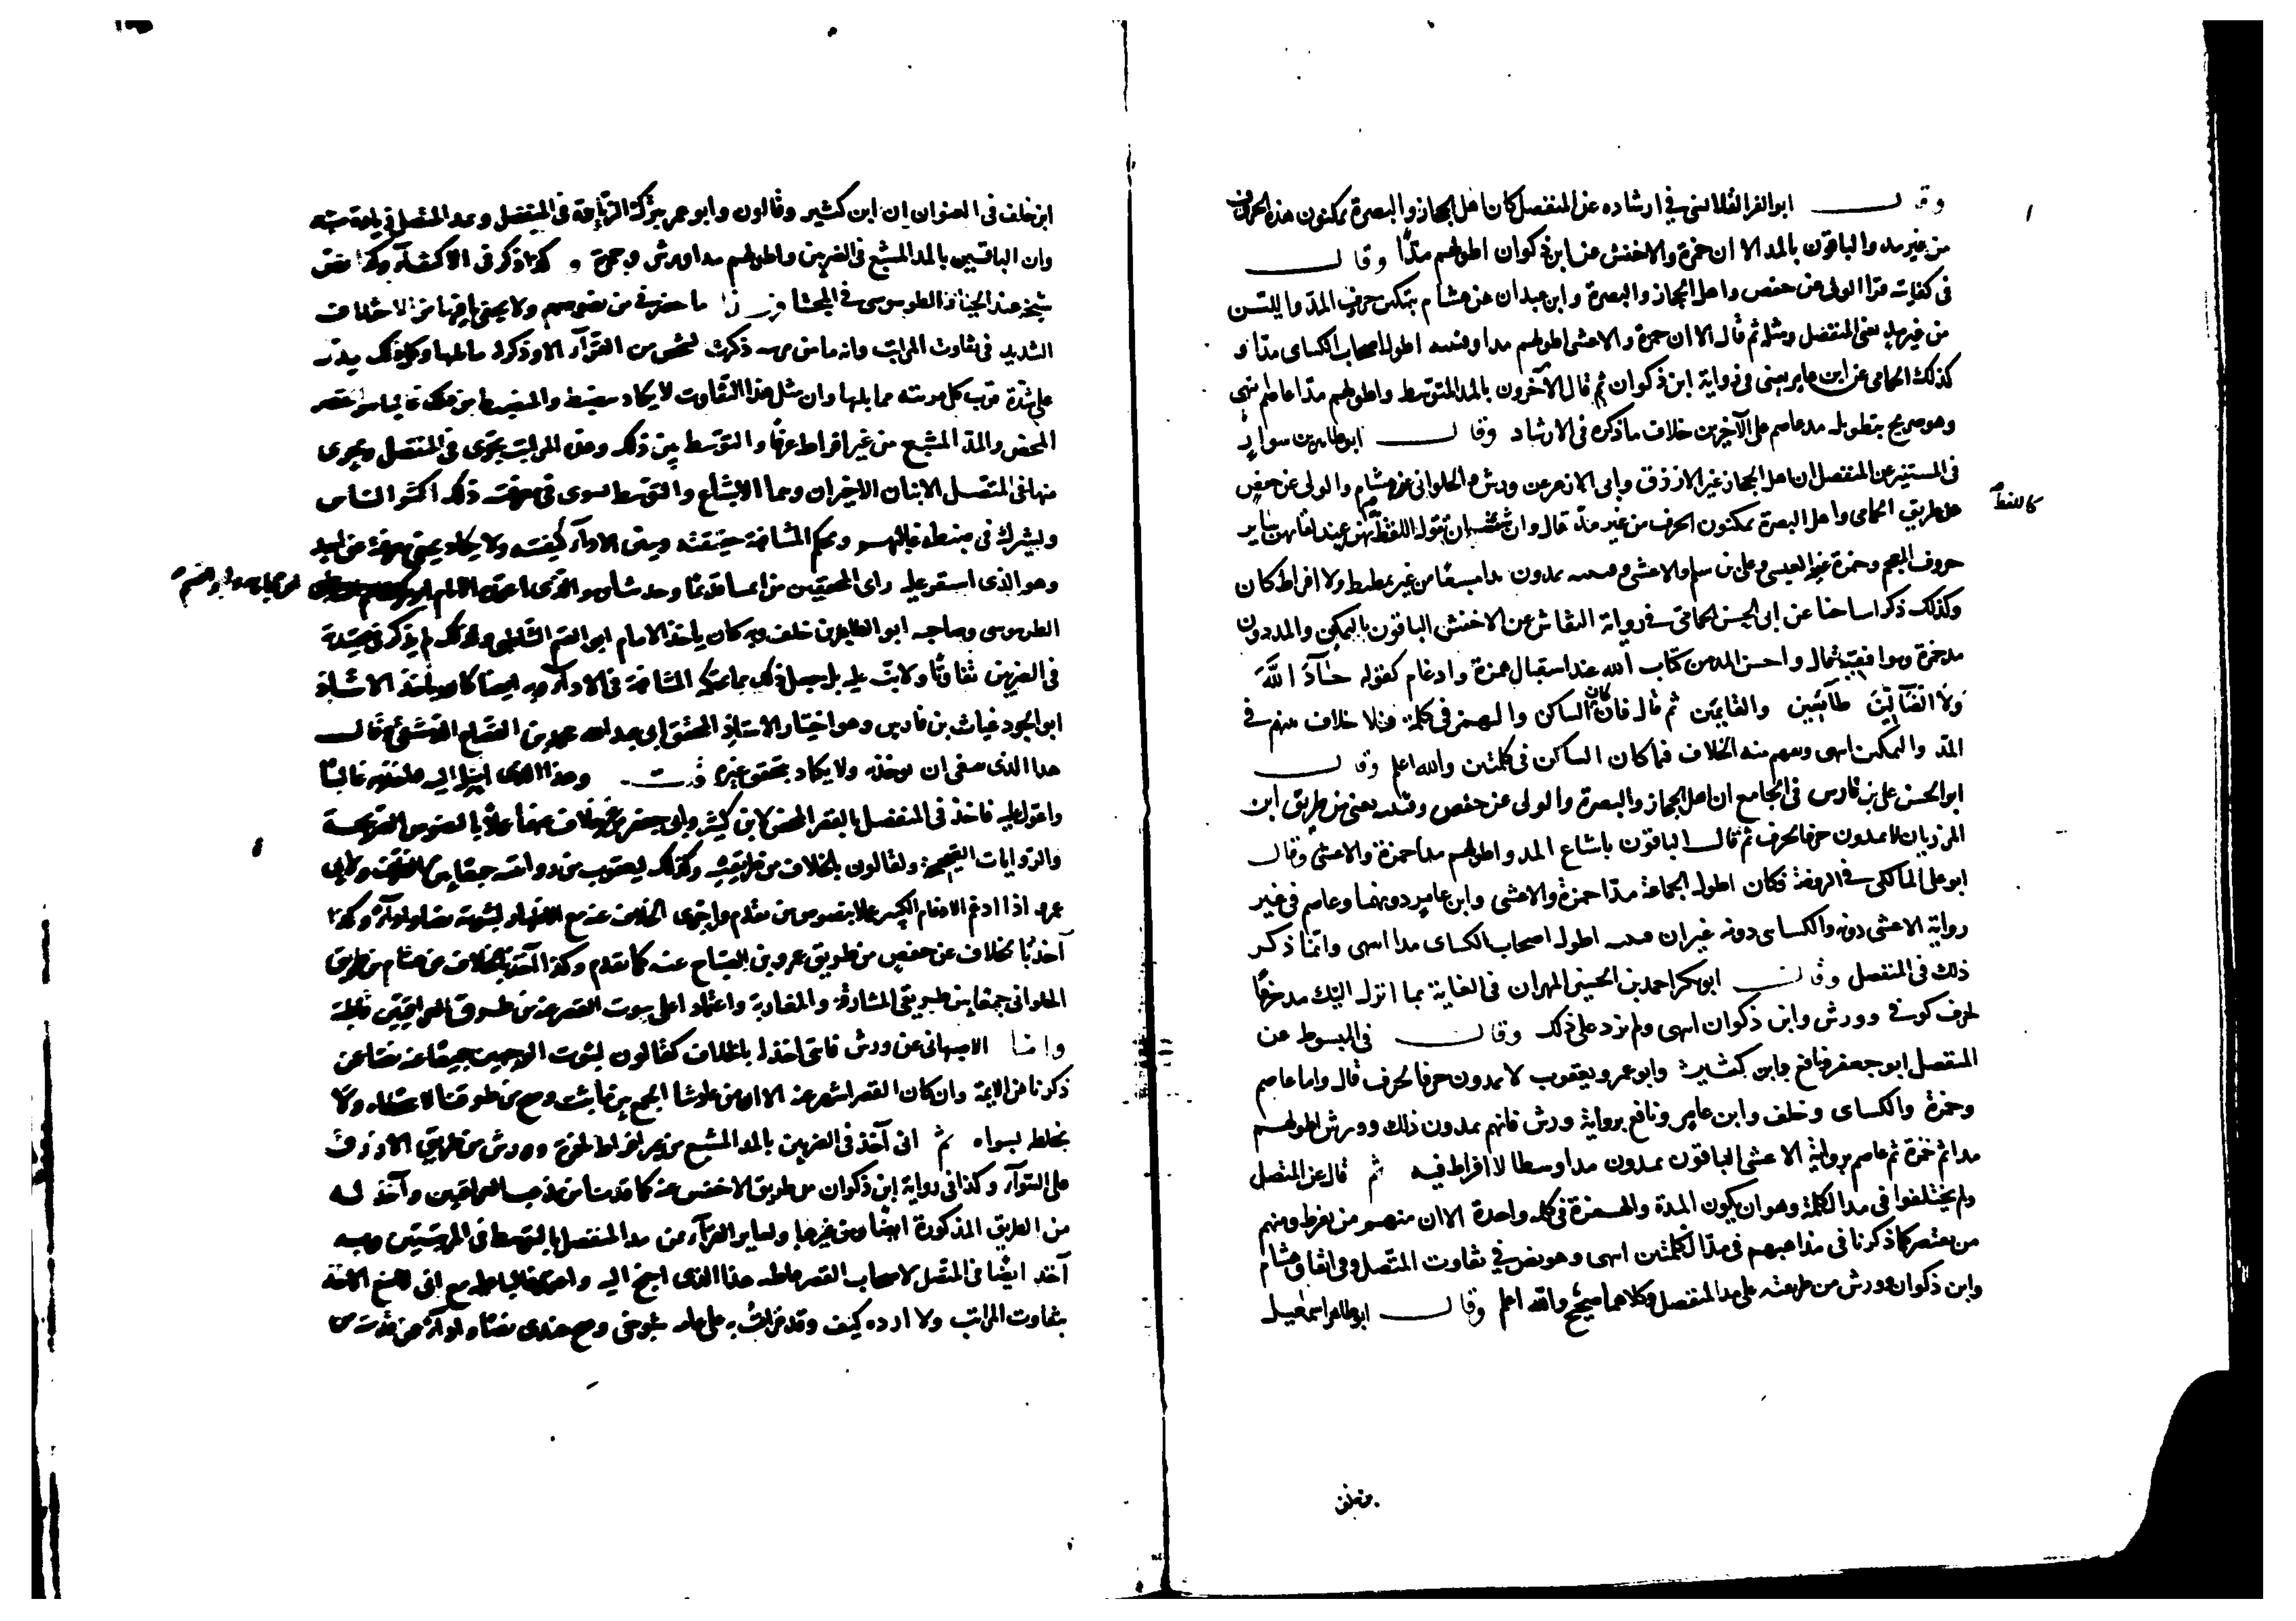 وقال ابو العز القلانسي في ارشاده عن المنفصل كان اهل الحجاز والبصرة يمكنون هذه الحروف
من غير مد والباقون بالمد الا ان حمزة والاخفش عن ابن ذكوان اطولهم مدًا وقال
في كفايته قرا الولي عن حفص واهل الحجاز والبصرة وابن عبدان عن هشام بتمكين حروف المد واللين
من غير مد يعني المنفصل ومثله ثم قال الا ان حمزة والاعشى اطولهم مدا وقتيبة اطول اصحاب الكساى مدًا و
كذلك الحمامي عن ابن عامر يعني في رواية ابن ذكوان ثم قال الآخرون بالمد المتوسط واطولهم مدًا عاصم انتهى
وهو صريح بتطويل مد عاصم على الآخرين خلاف ما ذكره في الارشاد وقال ابو طاهر بن سوار
في المستنير عن المنفصل ان اهل الحجاز غير الازرق وابى الازهر عن ورش والحلواني عن هشام والولي عن حفص
كاللفظ
من طريق الحمامي واهل البصرة يمكنون الحرف من غير مد قال وان شئت ان تقول اللفظ بهن عند لقائهن ساير
حروف المعجم وحمزة غير العبسي وعلى بن سلم والاعشى وقتيبة يمدون مدا مشبعًا من غير تمطيط ولا افراط كان
وكذلك ذكر اشياخنا عن ابى الحسن الحمامى في رواية النقاش عن الاخفش الباقون بالتمكين والمد دون
مد حمزة وموافقيه قال واحسن المد من كتاب الله عند استقبال همزة وادغام كقوله حَآدَّ اللهَ
وَلَا الضَّآلِّينَ طَآئِفِين والقَائِمين ثم قال فان كان الساكن والهمز في كلمة فلا خلاف بينهم في
المد والتمكين انتهى ويفهم منه الخلاف فيما كان الساكن في كلمتين والله اعلم وقال
ابو الحسن على بن فارس في الجامع ان اهل الحجاز والبصرة والولى عن حفص وقتيبة يعني من طريق ابن
المرزبان لا يمدون حرفا لحرف ثم قال الباقون باشباع المد واطولهم مدا حمزة والاعشى وقال
ابو على المالكي في الروضة فكان اطول الجماعة مدًا حمزة والاعشى وابن عامر دونهما وعاصم في غير
رواية الاعشى دونه والكساى دونه غير ان قتيبة اطول اصحاب الكساى مدا انتهى وانما ذكر
ذلك في المنفصل وقال ابو بكر احمد بن الحسين المهران في الغاية بما انزل اليك مد حرفًا
لحرف كوفى وورش وابن ذكوان انتهى ولم يزد على ذلك وقال في المبسوط عن
المنفصل ابو جعفر ونافع وابن كثير وابو عمرو ويعقوب لا يمدون حرفا لحرف قال واما عاصم
وحمزة والكساى وخلف وابن عامر ونافع برواية ورش فانهم يمدون ذلك وورش اطولهم
مدا ثم حمزة ثم عاصم برواية الاعشى الباقون يمدون مدا وسطا لا افراط فيه ثم قال عن المتصل
ولم يختلفوا في مد الكلمة وهو ان يكون المدة والهمزة في كلمة واحدة الا ان منهم من يفرط ومنهم
من يقتصر كما ذكرنا في مذاهبهم في مد الكلمتين انتهى وهو نص في تفاوت المتصل وفي اتفاق هشام
وابن ذكوان وورش من طريقيه على مد المنفصل وكلاهما صحيح والله اعلم وقال ابو طاهر اسمعيل
بن خلف
ابن خلف في العنوان ان ابن كثير وقالون وابو عمرو بترك الزيادة في المنفصل ويمد المتصل زيادة مشبعة
وان الباقين بالمد المشبع في الضربين واطولهم مدا ورش وحمزة وكذا ذكر في الاكتفاء وكذا نص
شيخه عبد الجبار الطرسوسي في المجتبى فهذا ما حضرني من نصوصهم ولا يخفى ما فيها من الاختلاف
الشديد في تفاوت المراتب وانه ما من مرتبة ذكرت لشخص من القرآء الا وذكر له ما يليها وكل ذلك يدل
على شدة قرب كل مرتبة مما يليها وان مثل هذا التفاوت لا يكاد ينضبط والمنضبط من ذلك غالبا هو القصر
المحض والمد المشبع من غير افراط عرفًا والتوسط بين ذلك وهذه المراتب تجرى في المنفصل ويجرى
منها في المتصل الاثنان الاخيران وهما الاشباع والتوسط يستوى في معرفة ذلك اكثر الناس
ويشترك في ضبطه غالبهم وتحكم المشافهة حقيقته ويبين الادآء كيفيته ولا يكاد يخفى معرفته على احد
وهو الذى استقر عليه راى المحققين من ايمتنا قديمًا وحديثا وهو الذى اعتمده الامام ابو بكر بن مجاهد وابو القسم
الطرسوسي وصاحبه ابو الطاهر بن خلف وبه كان ياخذ الامام ابو القسم الشاطبي ولذلك لم يذكر في قصيدته
في الضربين تفاوتًا ولا نبه عليه بل جعل ذلك مما تحكمه المشافهة في الادآء وبه ايضا كان ياخذ الاستاذ
ابو الجود غياث بن فارس وهو اختيار الاستاذ المحقق ابى عبد الله محمد بن القصاع الدمشقي وقال
هذا الذى ينبغى ان يوخذ به ولا يكاد يتحقق غيره قلت وهذا الذى اميل اليه واخذ به غالبًا
واعول عليه فاخذ في المنفصل بالقصر المحض لابن كثير وابى جعفر من غير خلاف عنهما عملًا بالنصوص الصريحة
والروايات الصحيحة ولقالون بالخلاف من طريقيه وكذلك ليعقوب من روايتيه جمعًا بين الطرق ولابى
عمرو اذا ادغم الادغام الكبير عملا بنصوص من تقدم واجرى الخلاف عنه مع الاظهار لثبوته نصا وادآءً وكذا
آخذ بالخلاف عن حفص من طريق عمرو بن الصباح عنه كما تقدم وكذا آخذ بالخلاف عن هشام من طريق
الحلوانى جمعًا بين طريقى المشارقة والمغاربة واعتمادا على ثبوت القصر عنه من طريق العراقيين قاطبة
واما الاصبهانى عن ورش فانى آخذ له بالخلاف كقالون لثبوت الوجهين جميعًا عنه نصا عن
ذكرنا من الايمة وان كان القصر اشهر عنه الا ان من عادتنا الجمع بين ما ثبت وصح من طرقنا لا نتخطاه ولا
نخلط بسواه ثم انى آخذ في الضربين بالمد المشبع من غير افراط لحمزة وورش من طريق الازرق
على السوآء وكذا في رواية ابن ذكوان من طريق الاخفش عنه كما قدمنا من مذهب العراقيين وآخذ له
من الطريق المذكورة ايضًا ومن غيرها ولساير القرآء ممن مد المنفصل بالتوسط في المرتبتين وبه
آخذ ايضًا في المتصل لاصحاب القصر قاطبة هذا الذى اجنح اليه واعتمد غالبا عليه مع انى لا امنع الاخذ
بتفاوت المراتب ولا ارده كيف وقد قرات به على عامة شيوخى وصح عندى نصًا وادآءً عمن قدمت من